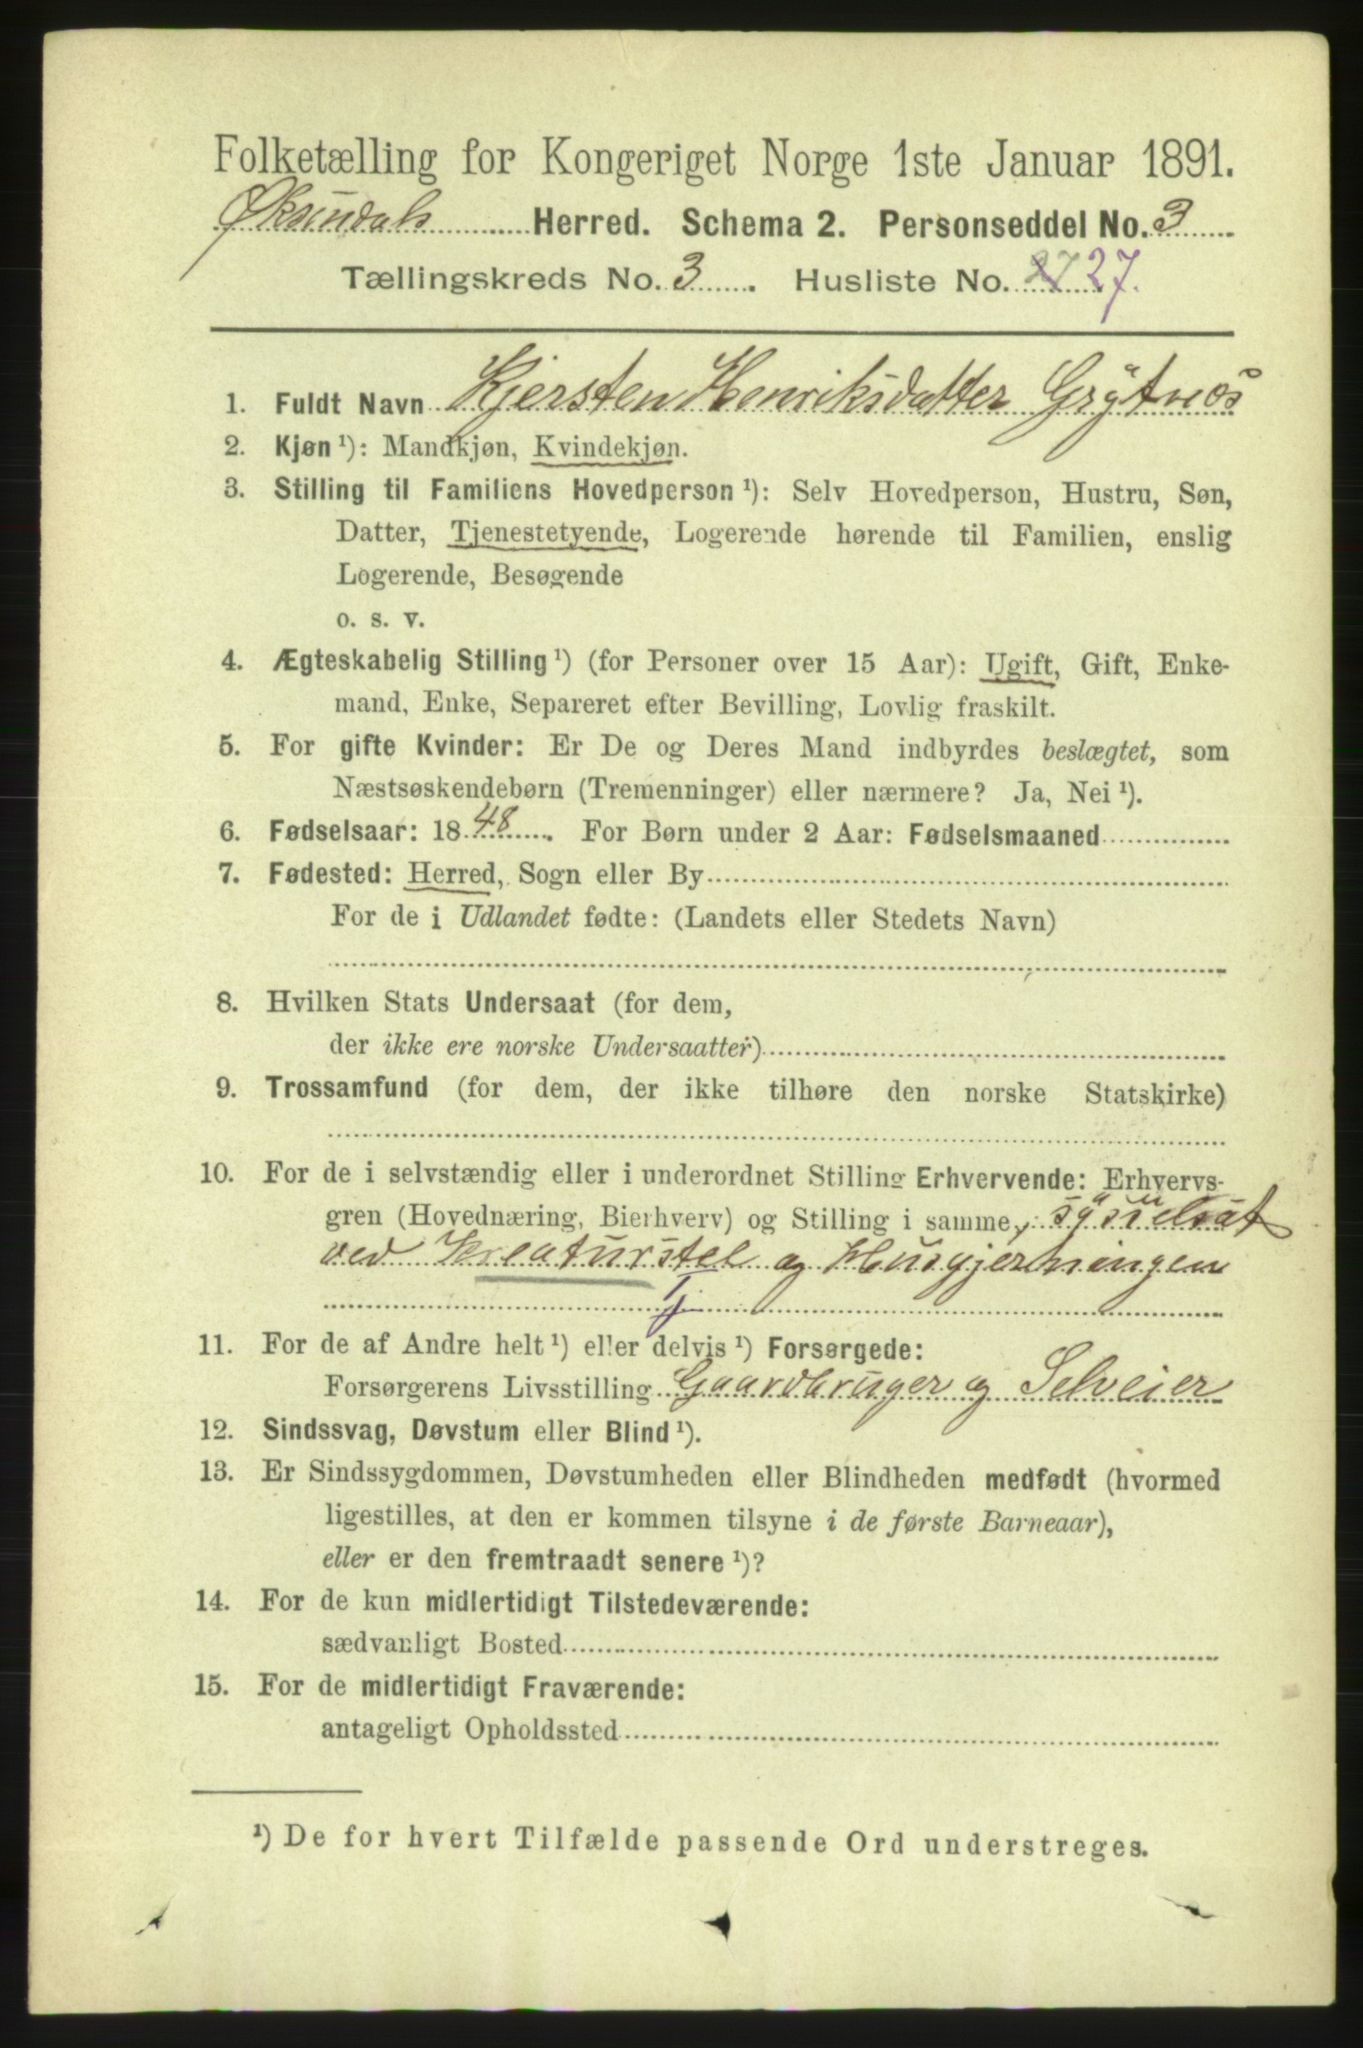 Folketælling for Kongeriget Norge 1ste Januar 1891.
Øksendals Herred. Schema 2. Personseddel No. 3
Tællingskreds No. 3. Husliste No. 27 27.
1. Fuldt Navn Kjersten Henriksdatter Grytnes
2. Kjøn ¹): Mandkjøn, Kvindekjøn.
3. Stilling til Familiens Hovedperson ¹): Selv Hovedperson, Hustru, Søn,
Datter, Tjenestetyende, Logerende hørende til Familien, enslig
Logerende, Besøgende
o. s. v.
4. Ægteskabelig Stilling ¹) (for Personer over 15 Aar): Ugift, Gift, Enke-
mand, Enke, Separeret efter Bevilling, Lovlig fraskilt.
5. For gifte Kvinder: Er De og Deres Mand indbyrdes beslægtet, som
Næstsøskendebørn (Tremenninger) eller nærmere? Ja, Nei ¹).
6. Fødselsaar: 18 48. For Børn under 2 Aar: Fødselsmaaned
7. Fødested: Herred, Sogn eller By
For de i Udlandet fødte: (Landets eller Stedets Navn)
8. Hvilken Stats Undersaat (for dem,
der ikke ere norske Undersaatter)
9. Trossamfund (for dem, der ikke tilhøre den norske Statskirke)
10. For de i selvstændig eller i underordnet Stilling Erhvervende: Erhvervs-
gren (Hovednæring, Bierhverv) og Stilling i samme, sysselsat
ved Kreaturstel og Husgjerningen
11. For de af Andre helt ¹) eller delvis ¹) Forsørgede:
Forsørgerens Livsstilling Gaardbruger og Selveier
12. Sindssvag, Døvstum eller Blind ¹).
13. Er Sindssygdommen, Døvstumheden eller Blindheden medfødt (hvormed
ligestilles, at den er kommen tilsyne i de første Barneaar),
eller er den fremtraadt senere ¹)?
14. For de kun midlertidigt Tilstedeværende:
sædvanligt Bosted
15. For de midlertidigt Fraværende:
antageligt Opholdssted
¹) De for hvert Tilfælde passende Ord understreges.